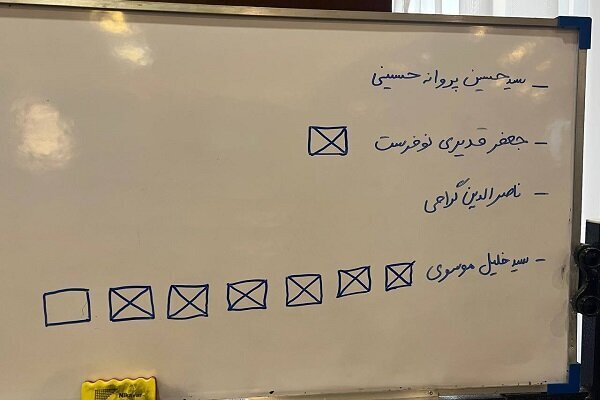 - سید حسین پروانه حسینی
- جعفر قدیری نوفرست
- ناصرالدین گراحی
- سید خلیل موسوی